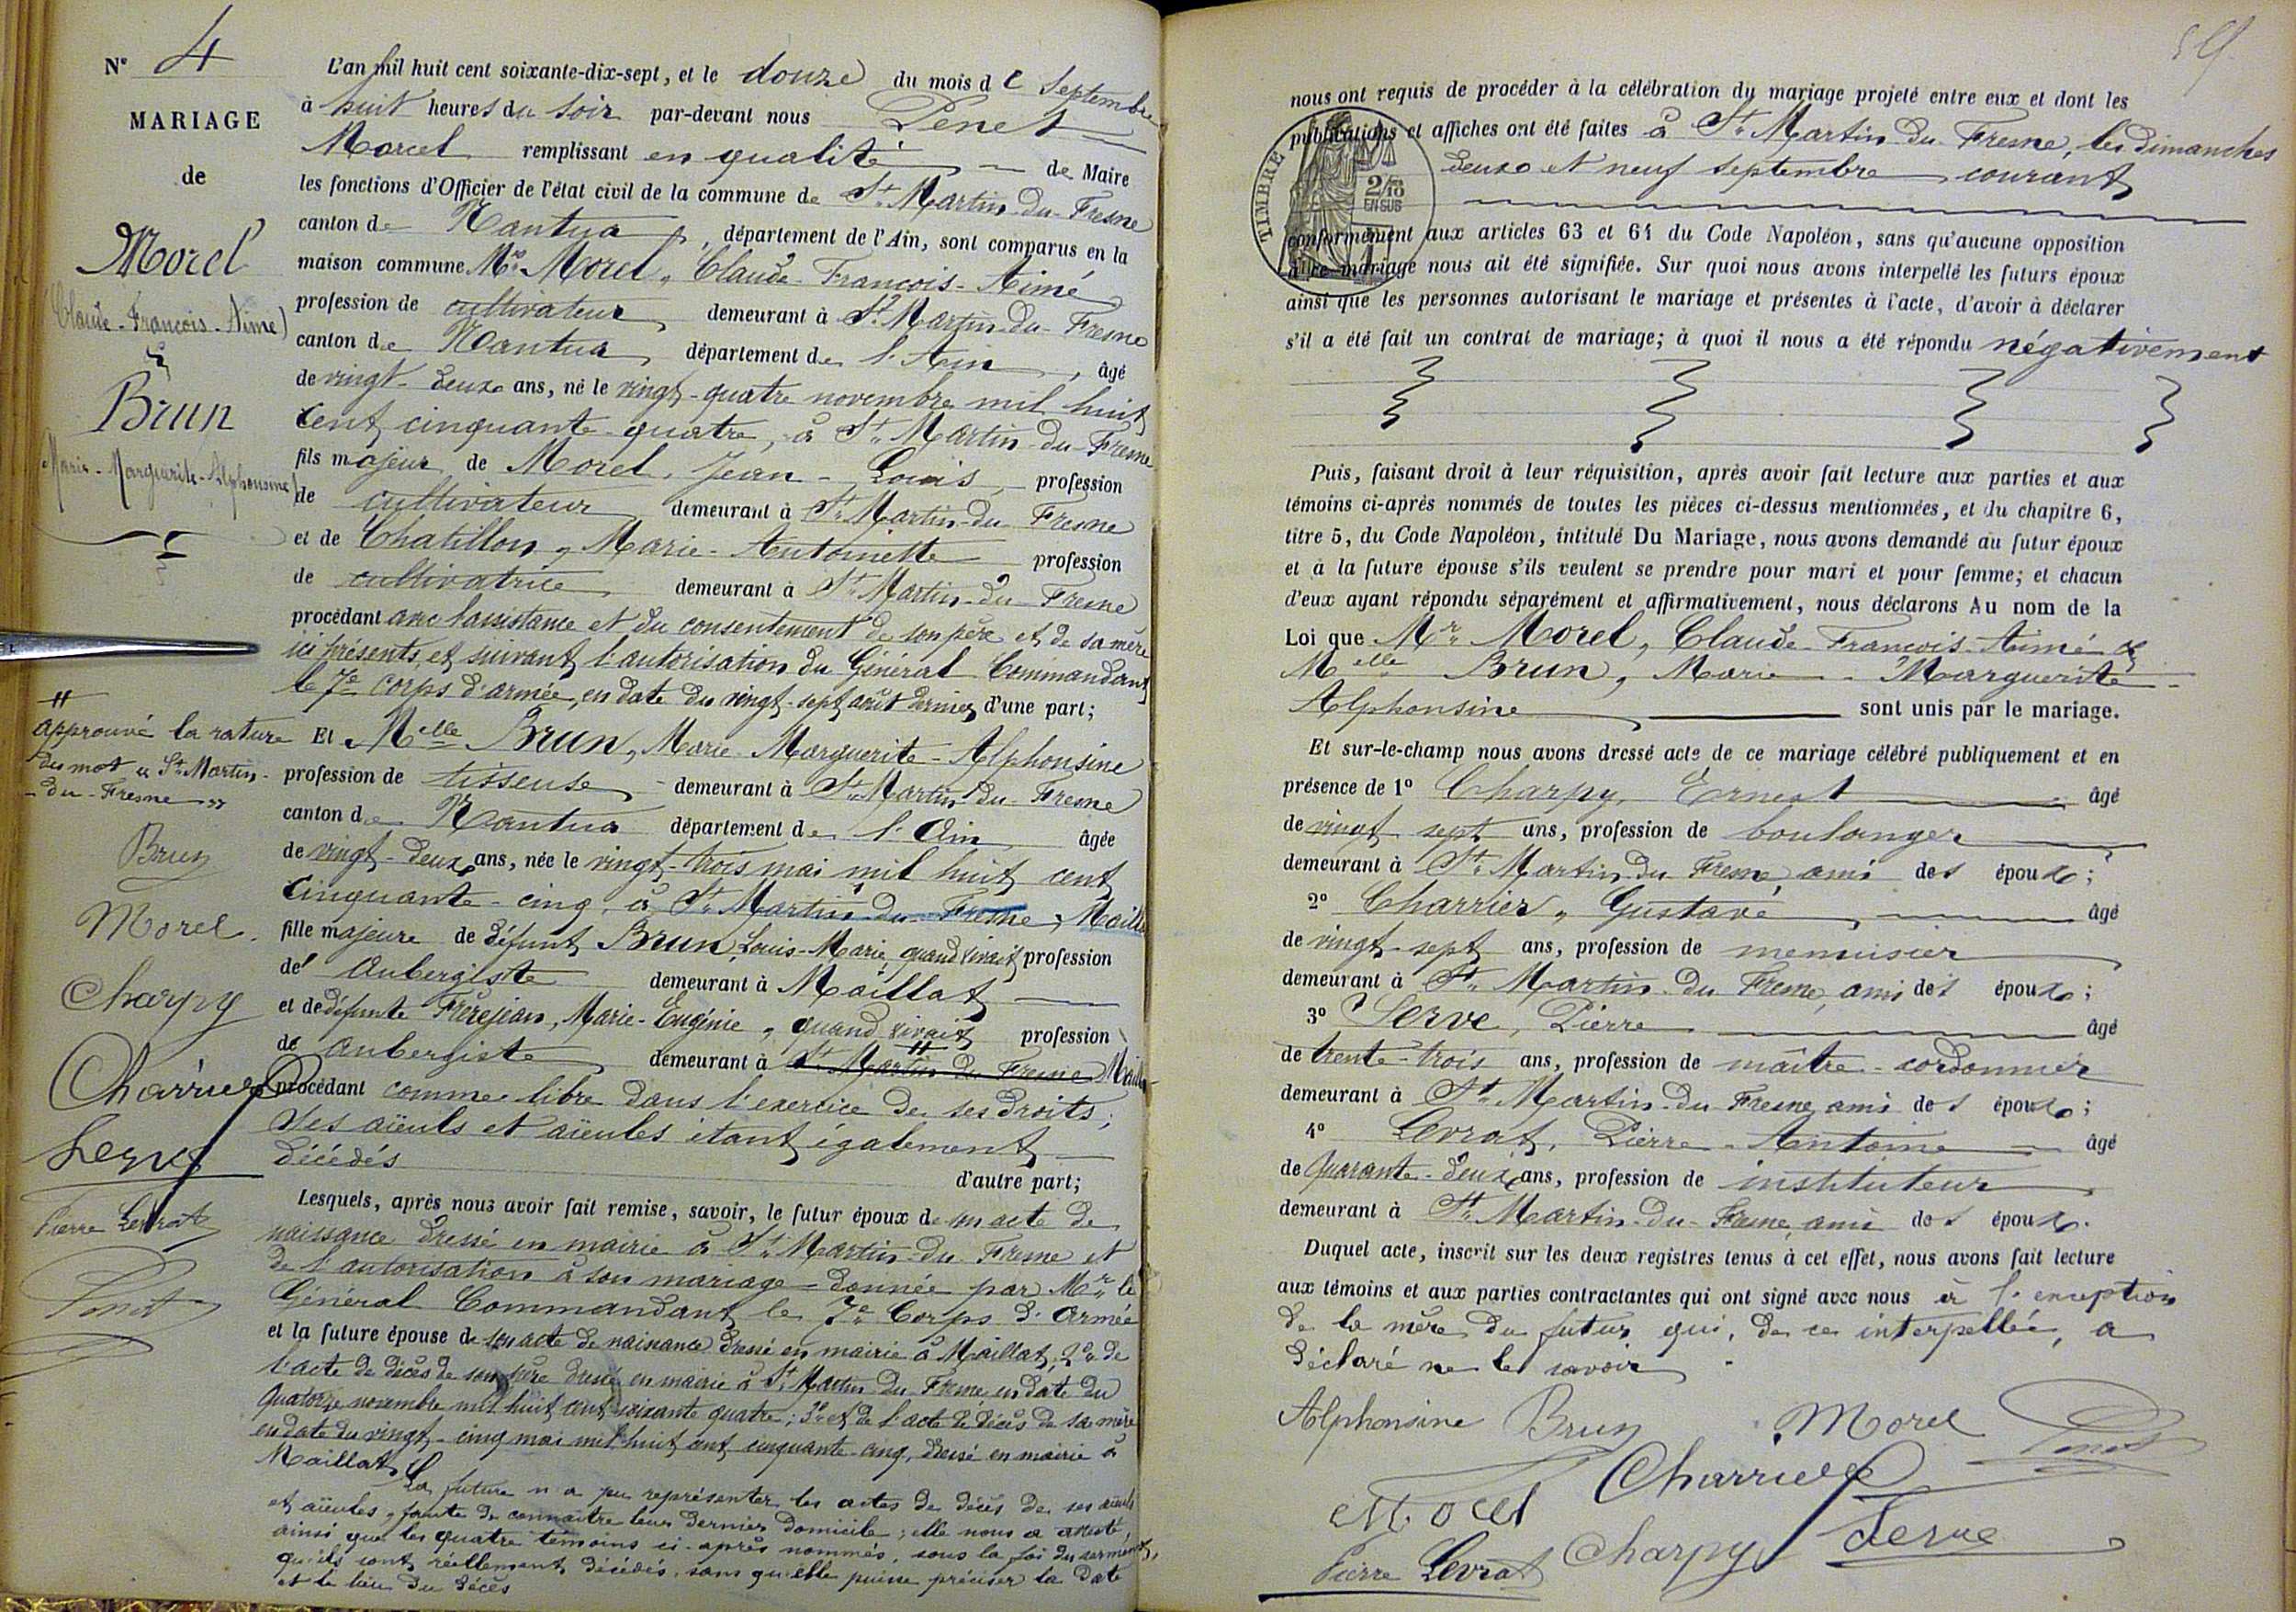 N° 4
MARIAGE
de
Morel
(Claude-François-Aimé)
Brun
Marie-Marguerite-Alphonsine
approuvé la rature
du mot "St Martin-
-du-Fresne"
Brun
Morel
Charpy
Charrier
Serve
Pierre Levrat
Penet
L'an mil huit cent soixante-dix-sept, et le douze du mois de Septembre
à huit heures du soir par-devant nous Penet
Marcel remplissant en qualité de Maire
les fonctions d'Officier de l'état civil de la commune de St Martin-du-Fresne
canton de Nantua, département de l'Ain, sont comparus en la
maison commune Mr Morel, Claude-François-Aimé
profession de cultivateur demeurant à St Martin-du-Fresne
canton de Nantua département de l'Ain, âgé
de vingt-deux ans, né le vingt-quatre novembre mil huit
cent cinquante-quatre, à St Martin-du-Fresne
fils majeur de Morel, Jean-Louis, profession
de cultivateur demeurant à St Martin-du-Fresne
et de Chatillon, Marie-Antoinette profession
de cultivatrice demeurant à St Martin-du-Fresne
procédant avec l'assistance et du consentement de son père et de sa mère
ici présents, et suivant l'autorisation du Général Commandant
le 7e corps d'armée, en date du vingt-sept août dernier, d'une part;
Et Melle Brun, Marie-Marguerite-Alphonsine
profession de tisseuse demeurant à St Martin-du-Fresne
canton de Nantua département de l'Ain âgée
de vingt-deux ans, née le vingt-trois mai mil huit cent
cinquante-cinq, à St Martin-du-Fresne, Maillat
fille majeure de défunt Brun, Louis-Marie, quand vivait profession
de Aubergiste demeurant à Maillat
et de défunte Frèrejean, Marie-Eugénie, quand vivait profession
de Aubergiste demeurant à St Martin du Fresne Maillat
procédant comme libre dans l'exercice de ses droits;
ses aïeuls et aïeules étant également
décédés d'autre part;
Lesquels, après nous avoir fait remise, savoir, le futur époux de son acte de
naissance dressé en mairie à St Martin-du-Fresne et
de l'autorisation à son mariage donnée par Mr le
Général Commandant le 7e Corps d'Armée
et la future épouse de son acte de naissance dressé en mairie à Maillat; 2° de
l'acte de décès de son père dressé en mairie à St Martin-du-Fresne, en date du
quatorze novembre mil huit cent soixante quatre; 3° et de l'acte de décès de sa mère
en date du vingt-cinq mai mil huit cent cinquante-cinq, dressé en mairie à
Maillat.
La future n'a pu représenter les actes de décès de ses aïeuls
et aïeules, faute de connaître leur dernier domicile; elle nous a attesté,
ainsi que les quatre témoins ci-après nommés, sous la foi du serment,
qu'ils sont réellement décédés, sans qu'elle puisse préciser la date
et le lieu du décès
nous ont requis de procéder à la célébration du mariage projeté entre eux et dont les
publications et affiches ont été faites à St Martin-du-Fresne, les dimanches
deux et neuf septembre courant
TIMBRE
2/10
EN SUS
conformément aux articles 63 et 64 du Code Napoléon, sans qu'aucune opposition
au ce mariage nous ait été signifiée. Sur quoi nous avons interpellé les futurs époux
ainsi que les personnes autorisant le mariage et présentes à l'acte, d'avoir à déclarer
s'il a été fait un contrat de mariage; à quoi il nous a été répondu négativement
Puis, faisant droit à leur réquisition, après avoir fait lecture aux parties et aux
témoins ci-après nommés de toutes les pièces ci-dessus mentionnées, et du chapitre 6,
titre 5, du Code Napoléon, intitulé Du Mariage, nous avons demandé au futur époux
et à la future épouse s'ils veulent se prendre pour mari et pour femme; et chacun
d'eux ayant répondu séparément et affirmativement, nous déclarons Au nom de la
Loi que Mr Morel, Claude-François-Aimé et
Melle Brun, Marie-Marguerite-
Alphonsine sont unis par le mariage.
Et sur-le-champ nous avons dressé acte de ce mariage célébré publiquement et en
présence de 1° Charpy, Ernest âgé
de vingt sept ans, profession de boulanger
demeurant à St Martin-du-Fresne, ami des époux;
2° Charrier, Gustave âgé
de vingt-sept ans, profession de menuisier
demeurant à St Martin-du-Fresne, ami des époux;
3° Serve, Pierre âgé
de trente-trois ans, profession de maître-cordonnier
demeurant à St Martin-du-Fresne, ami des époux;
4° Levrat, Pierre-Antoine âgé
de Quarante-deux ans, profession de instituteur
demeurant à St Martin-du-Fresne, ami des époux.
Duquel acte, inscrit sur les deux registres tenus à cet effet, nous avons fait lecture
aux témoins et aux parties contractantes qui ont signé avec nous à l'exception
de la mère du futur qui, de ce interpellée, a
déclaré ne le savoir.
Alphonsine Brun Morel Penet
Morel Charrier
Pierre Levrat Charpy Serve